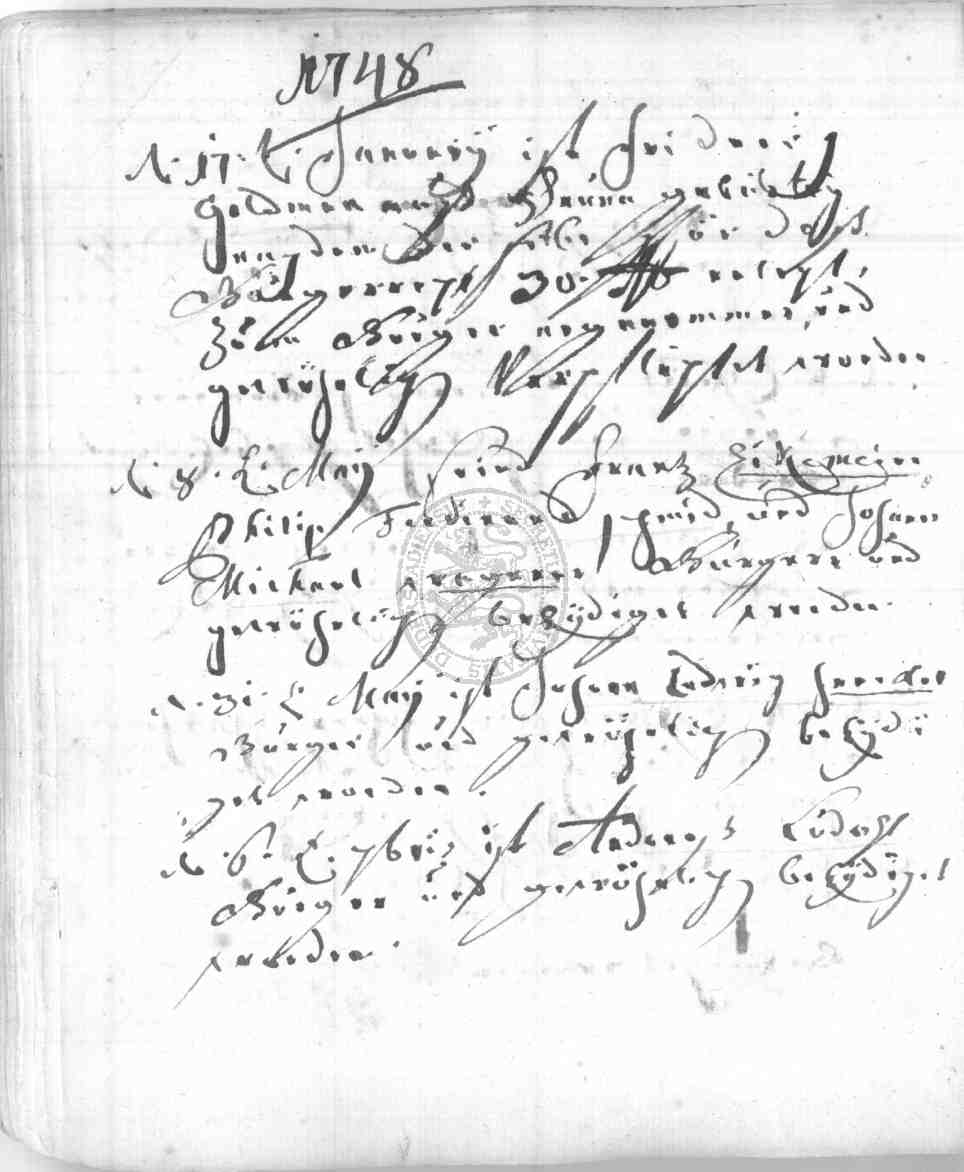 1748
d. 17. t. January ist Fridrich
Goldman gebürtig
nachdem derselbe für das
Bürgerrecht 30 erlegt,
zum Bürger angenommen, und
gewöhnlich Verpflichtet worden
d. 8. t. May seind Frantz
Philip Ferdinand Schmid, und Johann
Michael Wegener Bürgere und
gewöhnlich beeÿdiget worden.
d. 31. t. May ist Johann Ludwig
Bürger und gewöhnlich beeÿdi
get worden.
d. 6. t. 7bris ist Andreas
Bürger und gewöhnlich beeÿdiget
worden.